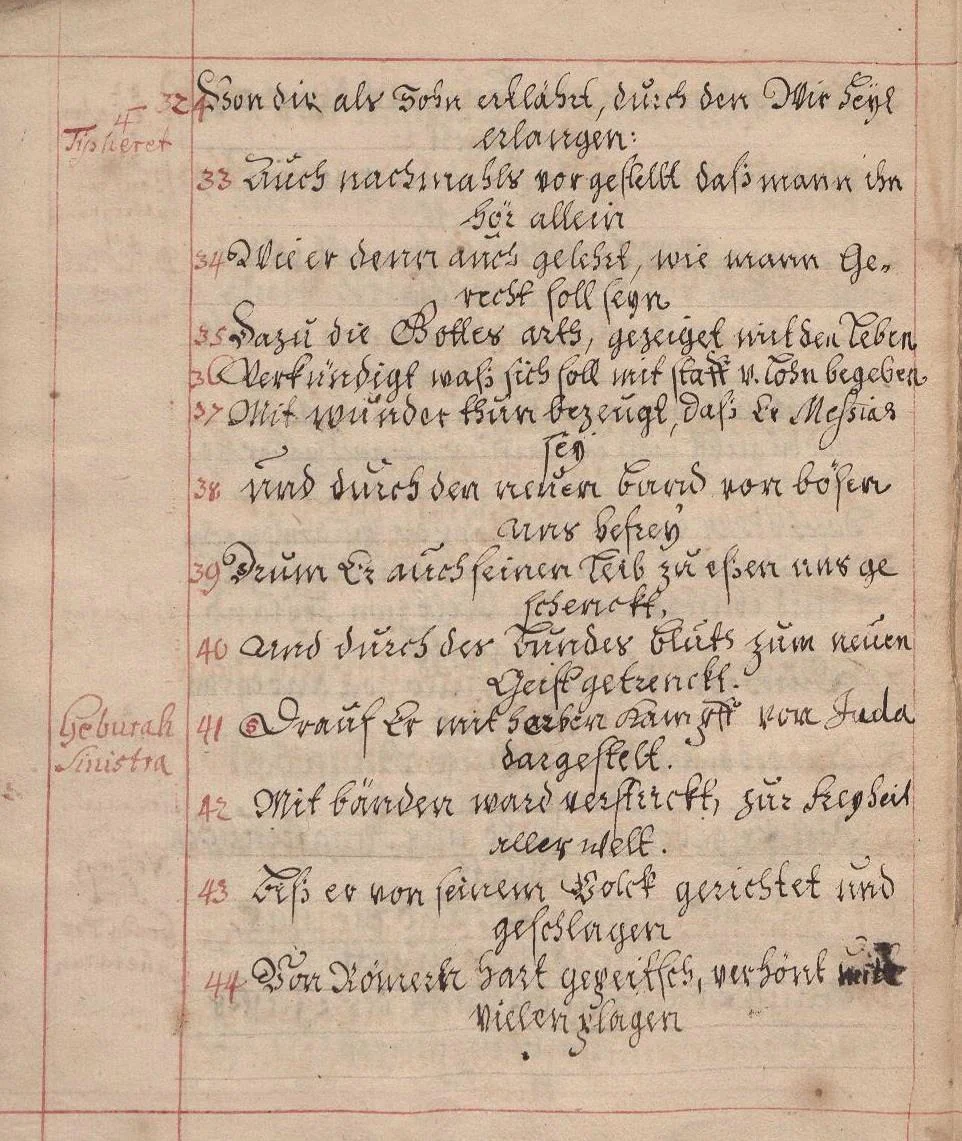 4 Tipheret
32 4 Von dir als Sohn erklährt, durch den Wir heyl
erlangen:
33 Auch nachmahls vorgestellt daß mann ihn
hör allein
34 Wie er denn auch gelehrt, wie mann Ge-
recht soll seyn
35 Dazu die Gottes arth, gezeiget mit den Leben
36 Verkündigt waß sich soll mit statt v. Lohn begeben
37 Mit wunder thun bezeugt, daß Er Meßias
sey
38 und durch den neuen band von bösen
uns befrey
39 Drum Er auch seinen Leib zu eßen uns ge
schenckt,
40 und durch des Bundes bluth zum neuen
Geist getrenckt.
Geburah
Sinistra
41 5 Drauf Er mit harben Kampff von Juda
dargestelt.
42 Mit bänden ward verstrickt, zur freyheit
aller welt.
43 biß er von seinem Volck gerichtet und
geschlagen
44 Von Römern hart gepeitsch, verhönt mitt
vielen plagen